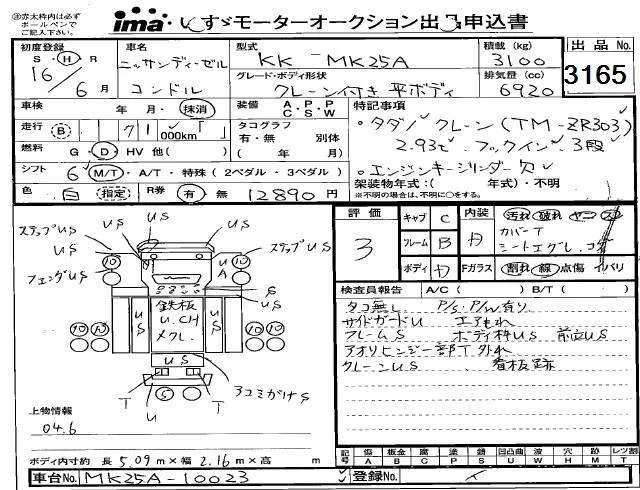 ※赤太枠内は必ず
ボールペンで
ご記入下さい。
ima いすゞモーターオークション出品申込書
初度登録 S・H・R 16年 6月
車名 ニッサンディーゼル コンドル
型式 KK-MK25A
グレード・ボディ形状 クレーン付き 平ボディ
積載 (kg) 3100
排気量 (cc) 6920
出品No. 3165
車検 年・月・抹消
装備 A.P.P C S W
走行 B 71 000km
タコグラフ 有・無 別体
( 年 月)
燃料 G・D・HV 他( )
シフト 6 M/T・A/T・特殊(2ペダル・3ペダル)
色 白 (指定) R券 有 無 12890円
特記事項
・タダノクレーン(TM-ZR303)
2.93t フックイン 3段
・エンジンキーシリンダー欠
架装物年式:( 年式)・不明
※不明の場合は、不明に○をする。
評価 3
キャブ C
フレーム B
ボディ D
内装 D 汚れ 破れ ヤニ ス
カバーT
シートエグレ
Fガラス 割れ 線 点傷 イバリ
検査員報告 A/C ( ) B/T ( )
タコ無し P/S P/W有り
サイドガードU エアもれ
フレームS ボディ枠US 前立US
アオリヒンジ一部T 外れ
クレーンUS 看板跡
ステップUS
US
US
ステップUS
フェンダUS
U A
10
10
S
US
鉄板
U.CH
メクレ
US
US
アユミがけS
T
U
T
上物情報
04.6
ボディ内寸約 長 5.09m×幅 2.16m×高 m
記号 傷A 板金B 腐C 凹P 塗P 錆S 凹U 波W 穴H M レツ割T
車台No. MK25A-10023
登録No.